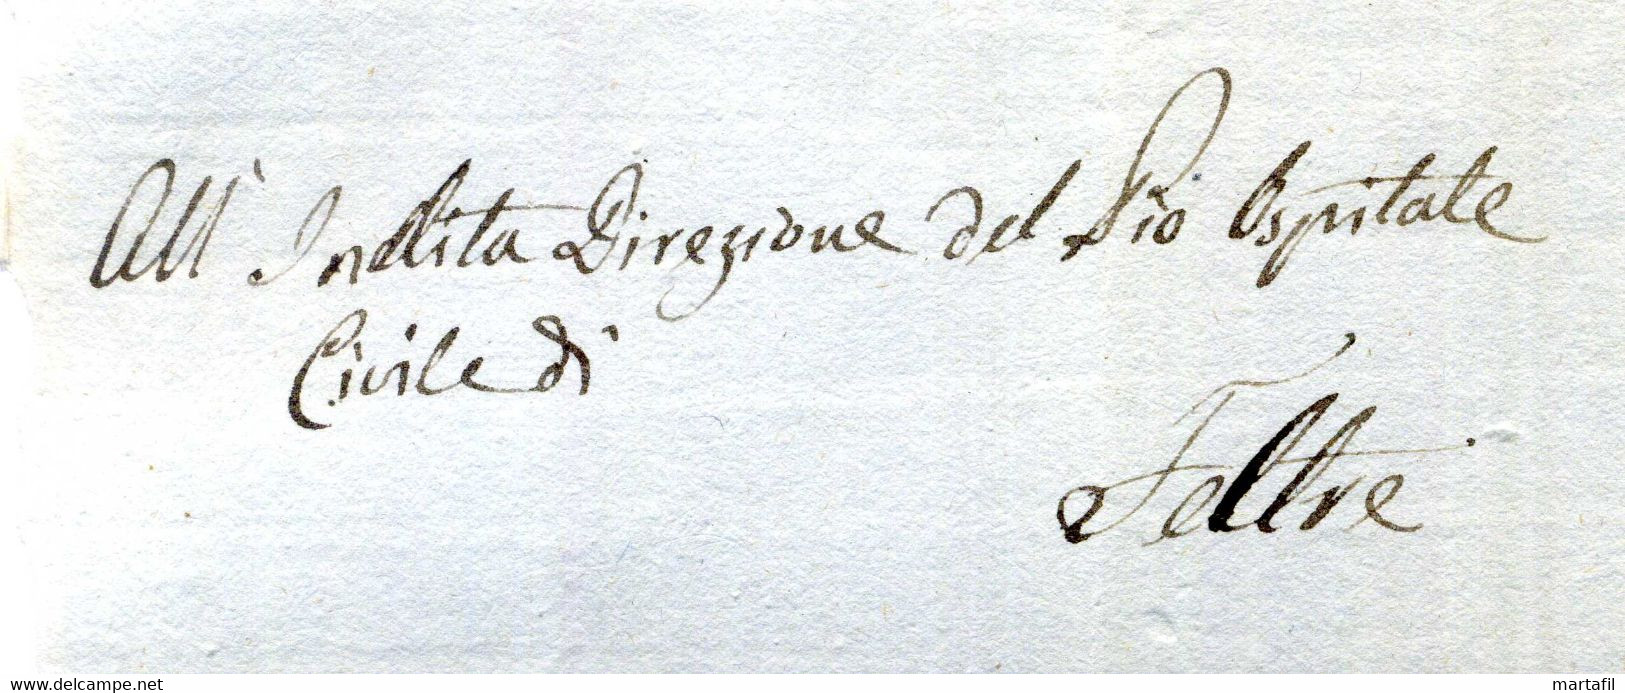 All' Inclita Direzione del Pio Ospitale
Civile di
Feltre
www.delcampe.net
martafil